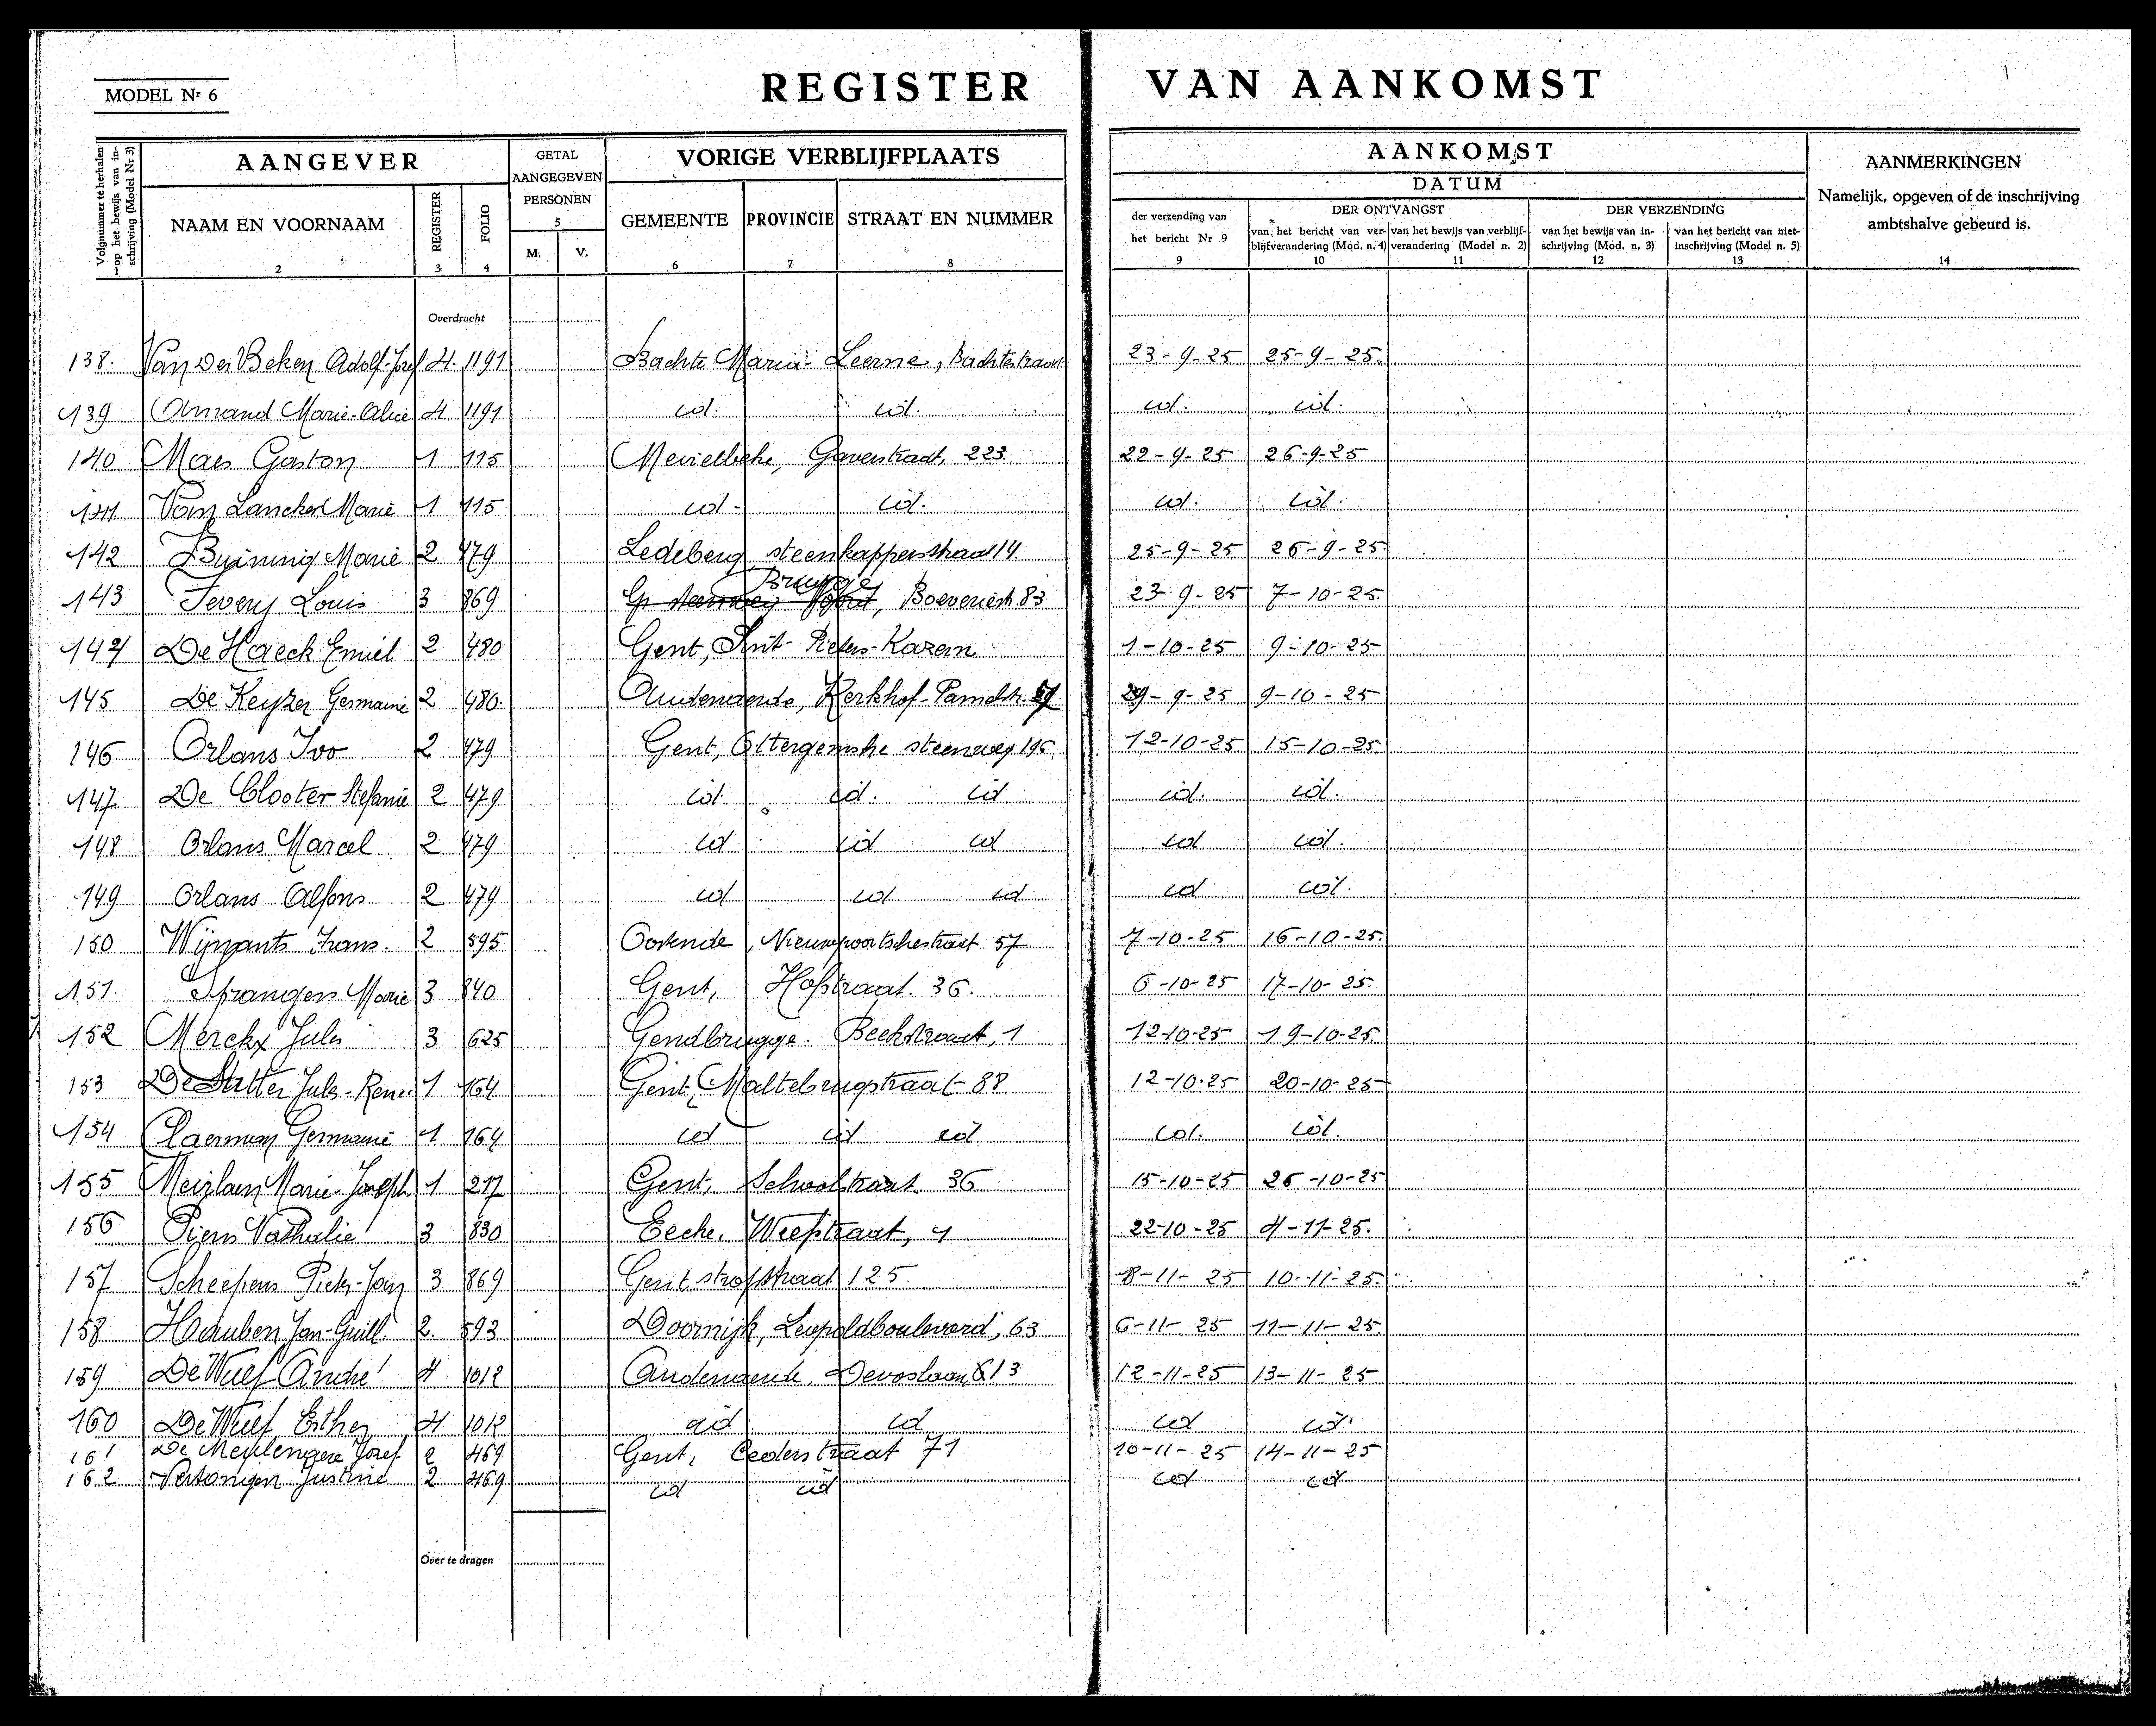 MODEL Nr 6
REGISTER VAN AANKOMST
Volgnummer te herhalen op het bewijs van inschrijving (Model Nr 3)
AANGEVER
NAAM EN VOORNAAM
2
REGISTER
3
FOLIO
4
GETAL
AANGEGEVEN
PERSONEN
5
M. V.
VORIGE VERBLIJFPLAATS
GEMEENTE
6
PROVINCIE
7
STRAAT EN NUMMER
8
AANKOMST
DATUM
der verzending van
het bericht Nr 9
9
DER ONTVANGST
van het bericht van ver-
blijfverandering (Mod. n. 4)
10
van het bewijs van verblijf-
verandering (Model n. 2)
11
DER VERZENDING
van het bewijs van in-
schrijving (Mod. n. 3)
12
van het bericht van niet-
inschrijving (Model n. 5)
13
AANMERKINGEN
Namelijk, opgeven of de inschrijving
ambtshalve gebeurd is.
14
Overdracht
138. Van Der Beken Adolf-Jozef 4 1191 Bachte Maria-Leerne, Bachtestraat 23-9-25 25-9-25.
139 Amand Marie-Alice 4 1191 id. id. id. id.
140 Maes Gaston 1 115 Merelbeke, Gaverstraat, 223 22-9-25 26-9-25
141 Van Lancker Marie 1 115 id. id. id. id.
142 Buining Marie 2 479 Ledeberg steenkapperstraat 14 25-9-25 26-9-25
143 Severy Louis 3 869 Brugge, Boeveriestr. 83 23-9-25 7-10-25
144 De Haeck Emiel 2 480 Gent, Sint-Pieters-Kazern 1-10-25 9-10-25
145 De Keyzer Germaine 2 480 Audenaerde, Kerkhof-Pamelstr. 29-9-25 9-10-25
146 Orlans Ivo 2 479 Gent, Ottergemsche steenweg 195 12-10-25 15-10-25
147 De Clooter Stefanie 2 479 id. id. id id. id.
148 Orlans Marcel 2 479 id id id id id.
149 Orlans Alfons 2 479 id id id id id.
150 Wijnants Frans. 2 595 Oostende, Nieuwpoortschestraat 57 7-10-25 16-10-25.
151 Spranger Marie 3 840 Gent, Hofstraat. 36. 6-10-25 17-10-25.
152 Merckx Jules 3 625 Gendbrugge. Beekstraat, 1 12-10-25 19-10-25.
153 De Sutter Jules-René 1 164 Gent, Maltebrugstraat 88 12-10-25 20-10-25
154 Laerman Germaine 1 164 id id id id. id.
155 Meirlaen Marie-Joseph 1 217 Gent, Schoolstraat 36 15-10-25 26-10-25
156 Piers Nathalie 3 830 Eecke, Weefstraat, 1 22-10-25 4-11-25.
157 Scheipens Pieter-Jan 3 869 Gent stropstraat 125 8-11-25 10-11-25.
158 Hauben Jan-Guill. 2. 593 Doornijk, Leopoldboulevard, 63 6-11-25 11-11-25.
159 De Wulf André 4 1012 Audenaerde, Devoslaan 13 12-11-25 13-11-25
160 De Wulf Esther 4 1012 id id id id.
161 De Meulengere Jozef 2 469 Gent, Cederstraat 71 10-11-25 14-11-25
162 Vertongen Justine 2 469 id id id id
Over te dragen